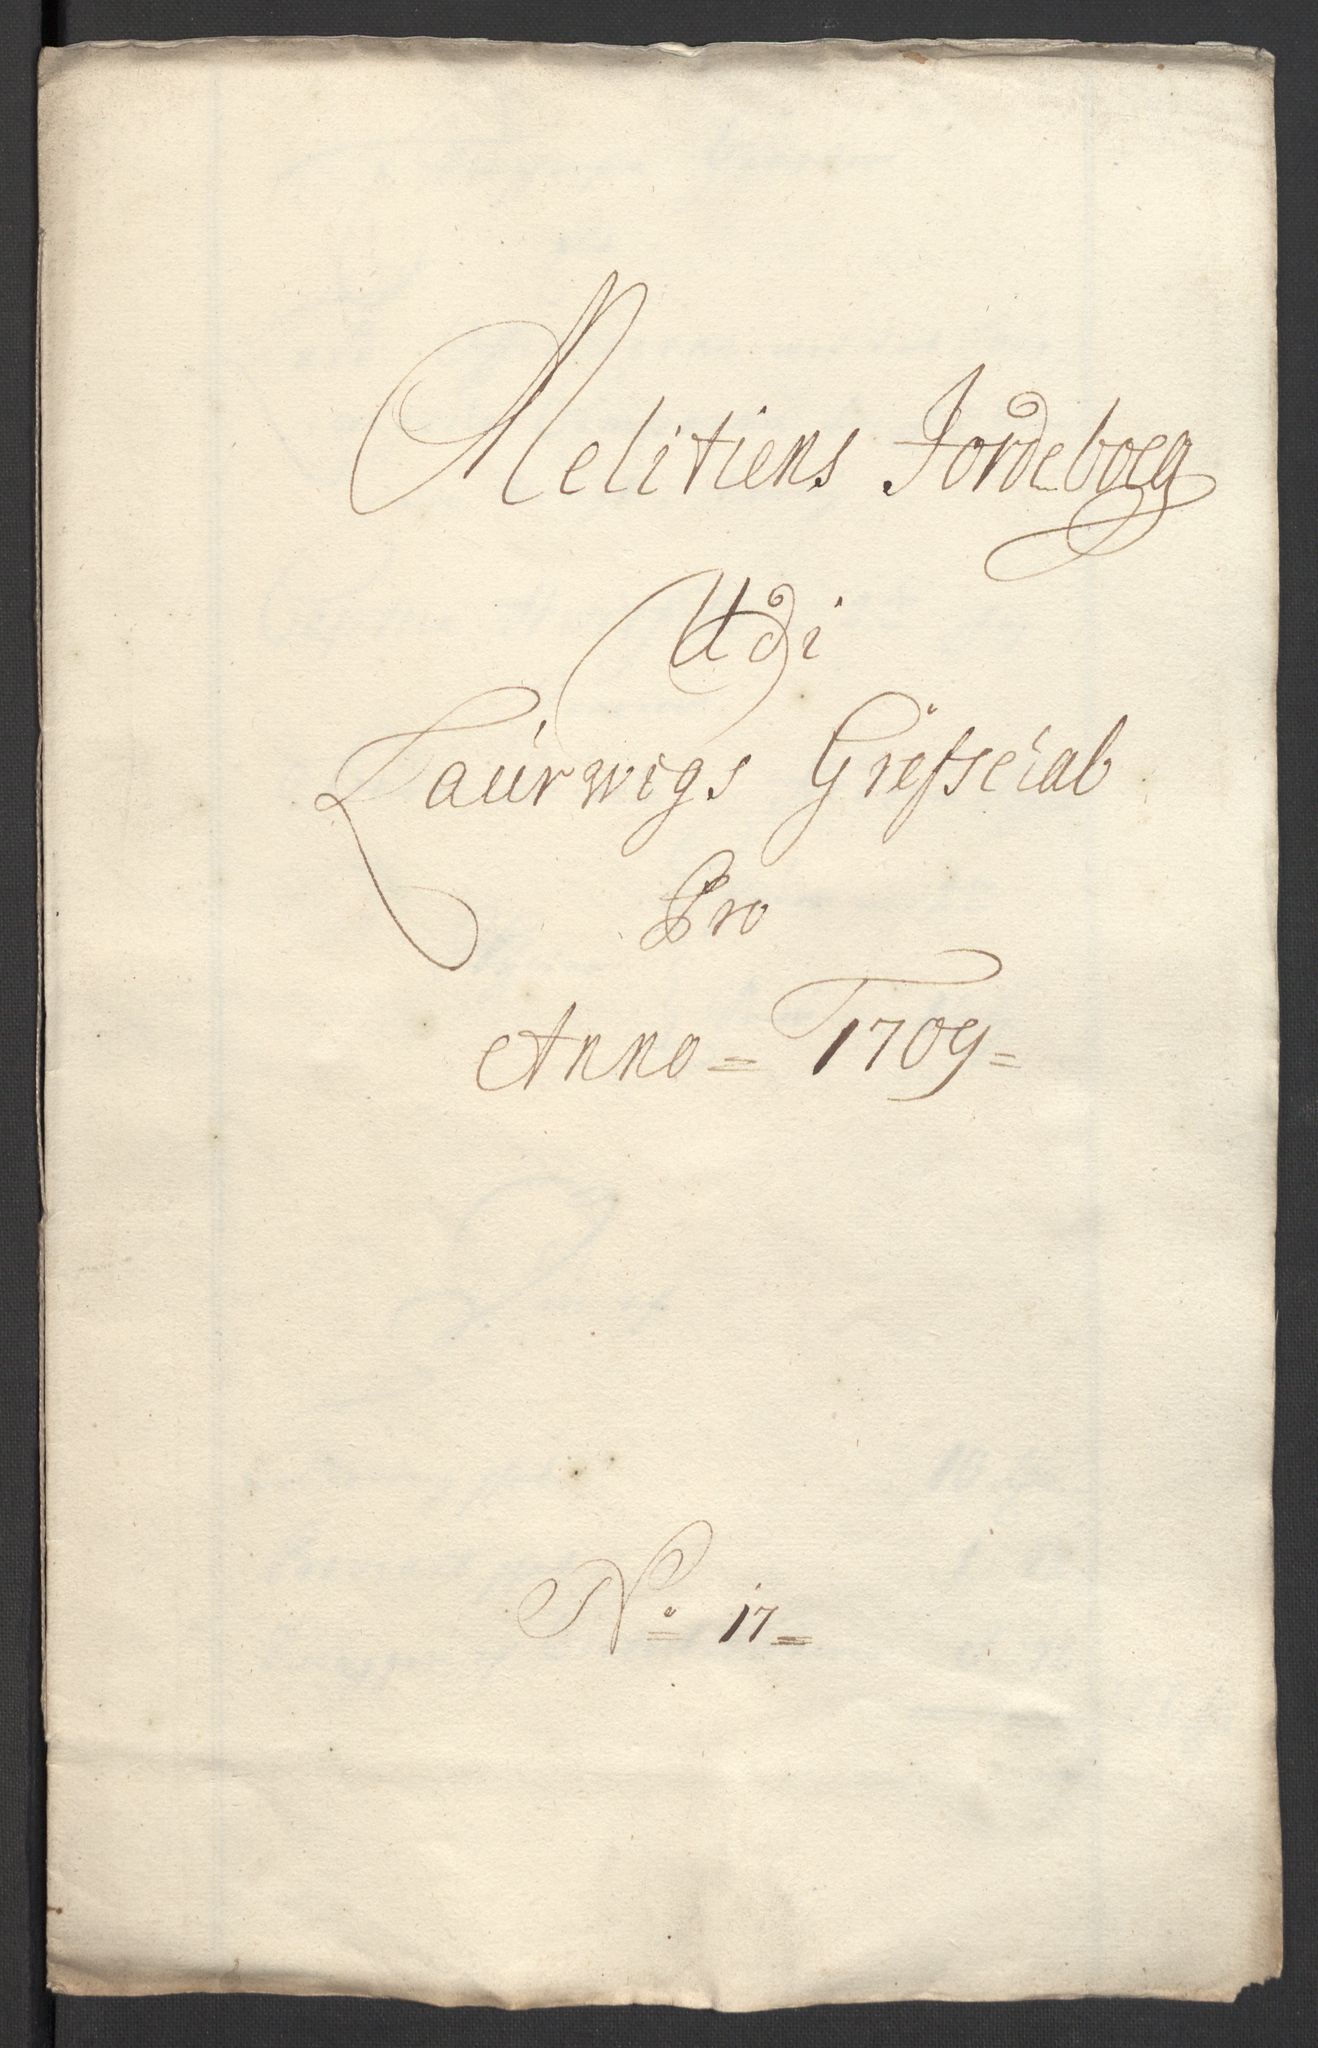 Melitiens Jordeboeg
Udi
Laurwigs Grefschab
Pro
Anno = 1709 =
No 17 =